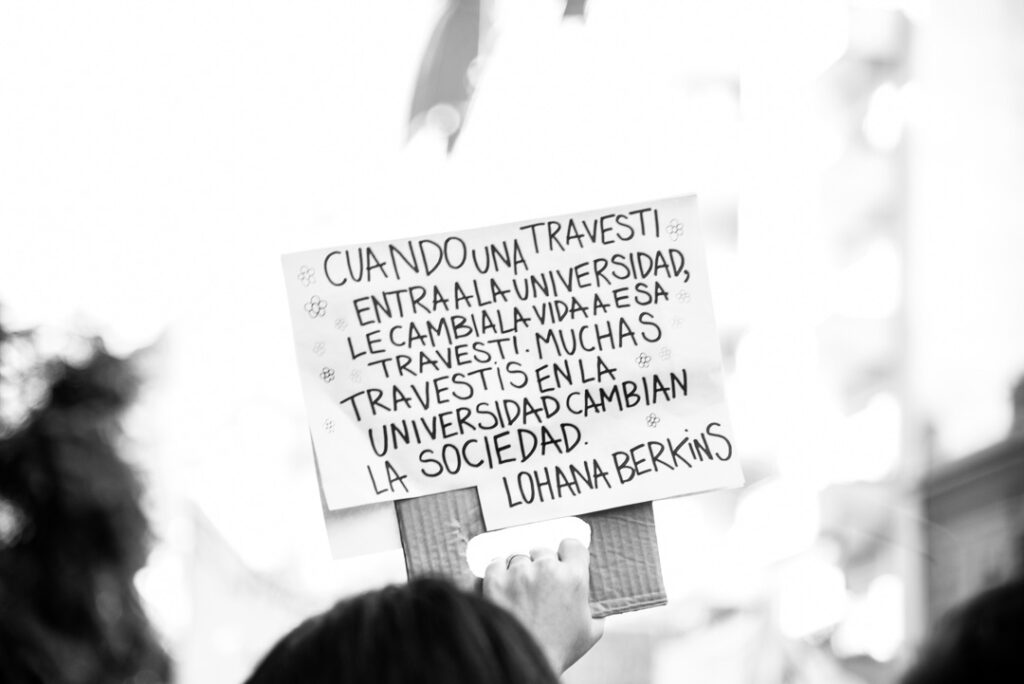 CUANDO UNA TRAVESTI
ENTRA A LA UNIVERSIDAD,
LE CAMBIA LA VIDA A ESA
TRAVESTI. MUCHAS
TRAVESTIS EN LA
UNIVERSIDAD CAMBIAN
LA SOCIEDAD.
LOHANA BERKINS